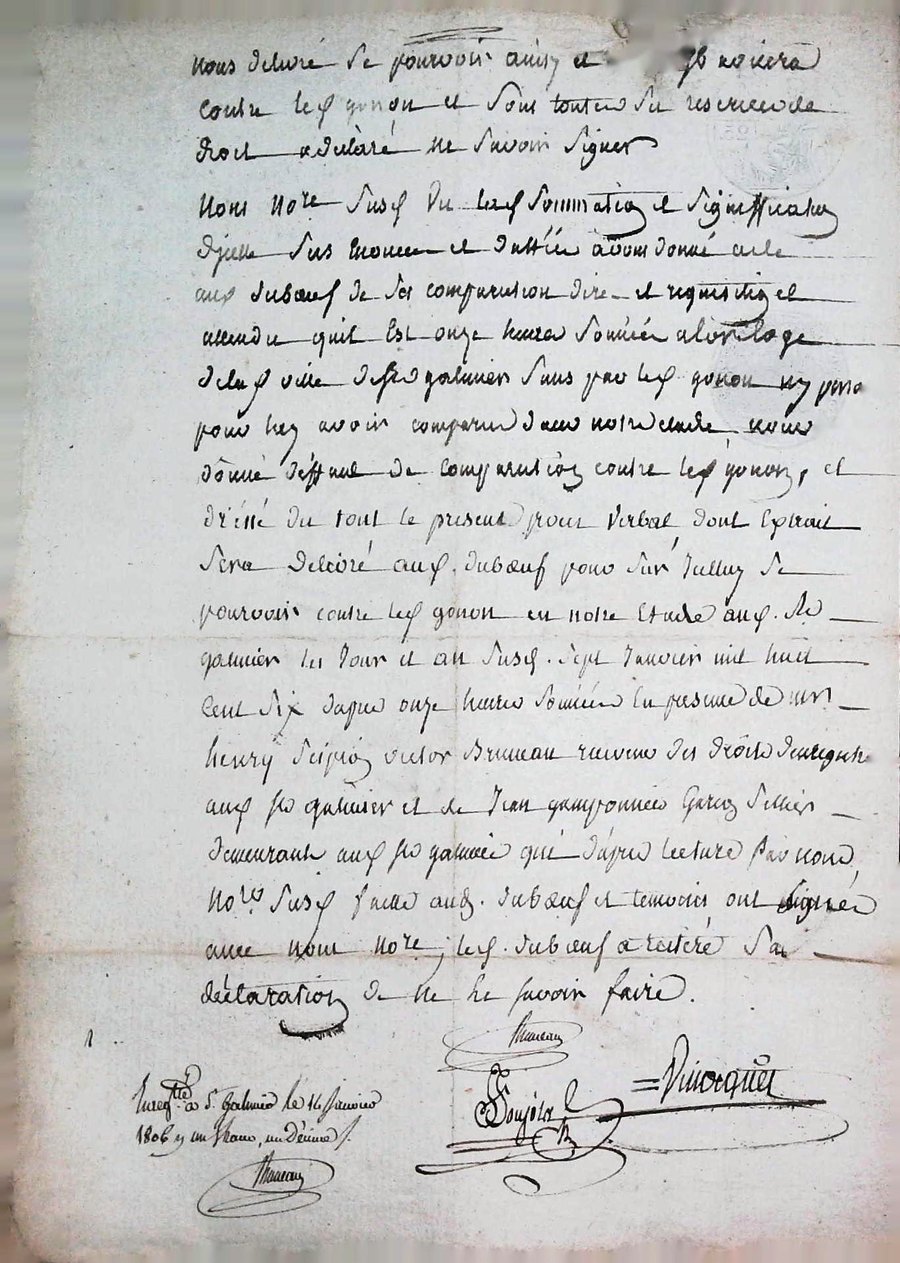 nous delivré se pourvoir ainsy et avisera
contre led gonon et sous touttes ses reserves de
droit a déclaré ne savoir signer
Nous Nore susd Vu lad sommation et signiffication
d'jcelle sus enoncée et dattée avons donné acte
aud dubœuf de ses comparution dire et requisition et
attendu quil est onze heures sonnées alorloge
delad ville dest galmier sans que led gonon ny perso
pour luy avoir comparu dans notre etude nous
donné deffaut de comparution contre led gonon, et
dréssé du tout le present procés Verbal dont Extrait
sera delivré aud. dubœuf pour sur Jcelluy se
pourvoir contre led gonon en notre Etude aud. St
galmier les Jour et an susd. sept Janvier mil huit
Cent six d'aprés onze heures sonnées En presence de mr
henry scipion victor Bruneau receveur des droits denregistr
aud st galmier et de Jean garçon sellier
demeurant aud st galmier qui d'aprés lecture par nous
Nore susd faitte aud. dubœuf et temoins ont signés
avec nous Nore, led. dubœuf a reiteré sa
déclaration de ne le savoir faire.
Bruneau
Enregtré a St. Galmier le 14 Janvier
1806 un franc, un Décime
Bruneau